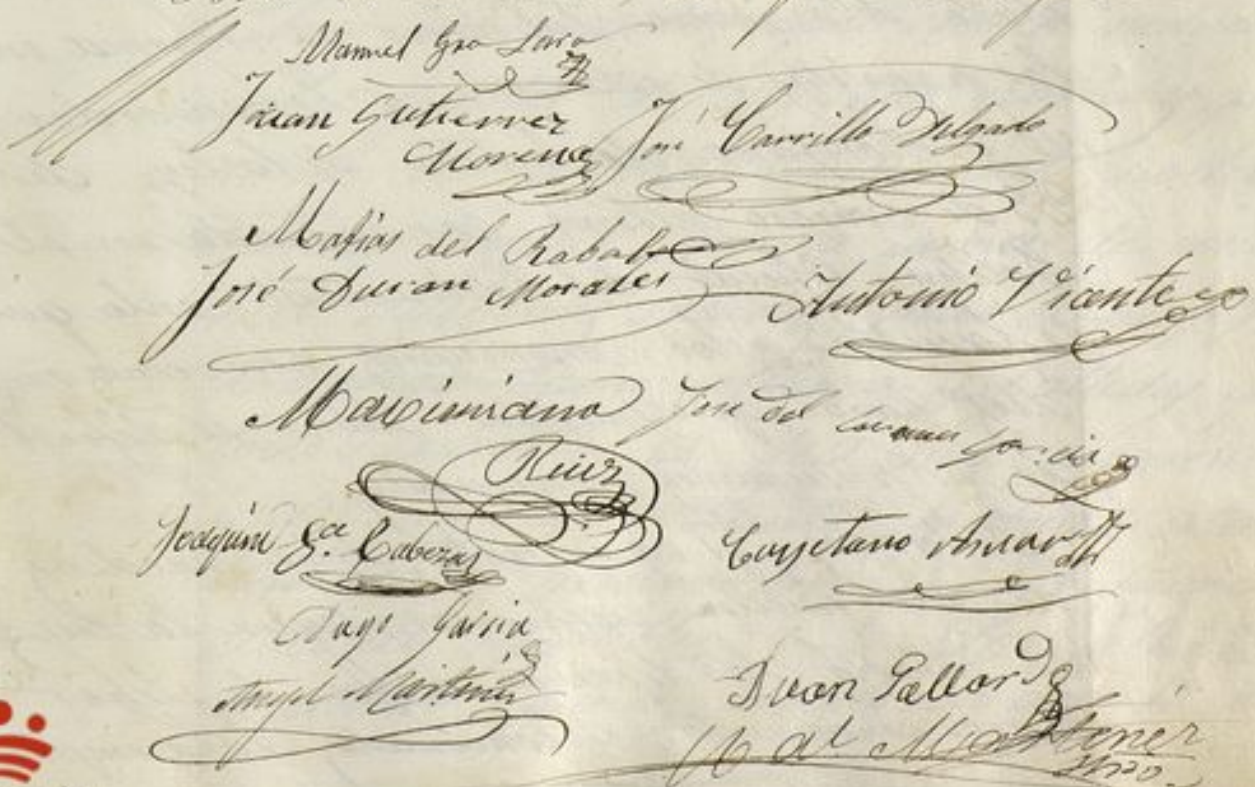 Manuel Gra Lara
Juan Gutierrez
Moreno
José Carrillo Delgado
Matias del Rabal
José Duran Morales
Antonio Vicente
Maximiano
Ruiz
José del Carmen Garcia
Joaquin Ga. Cabezas
Cayetano Amar
Diego Garcia
Angel Martinez
Juan Gallardo